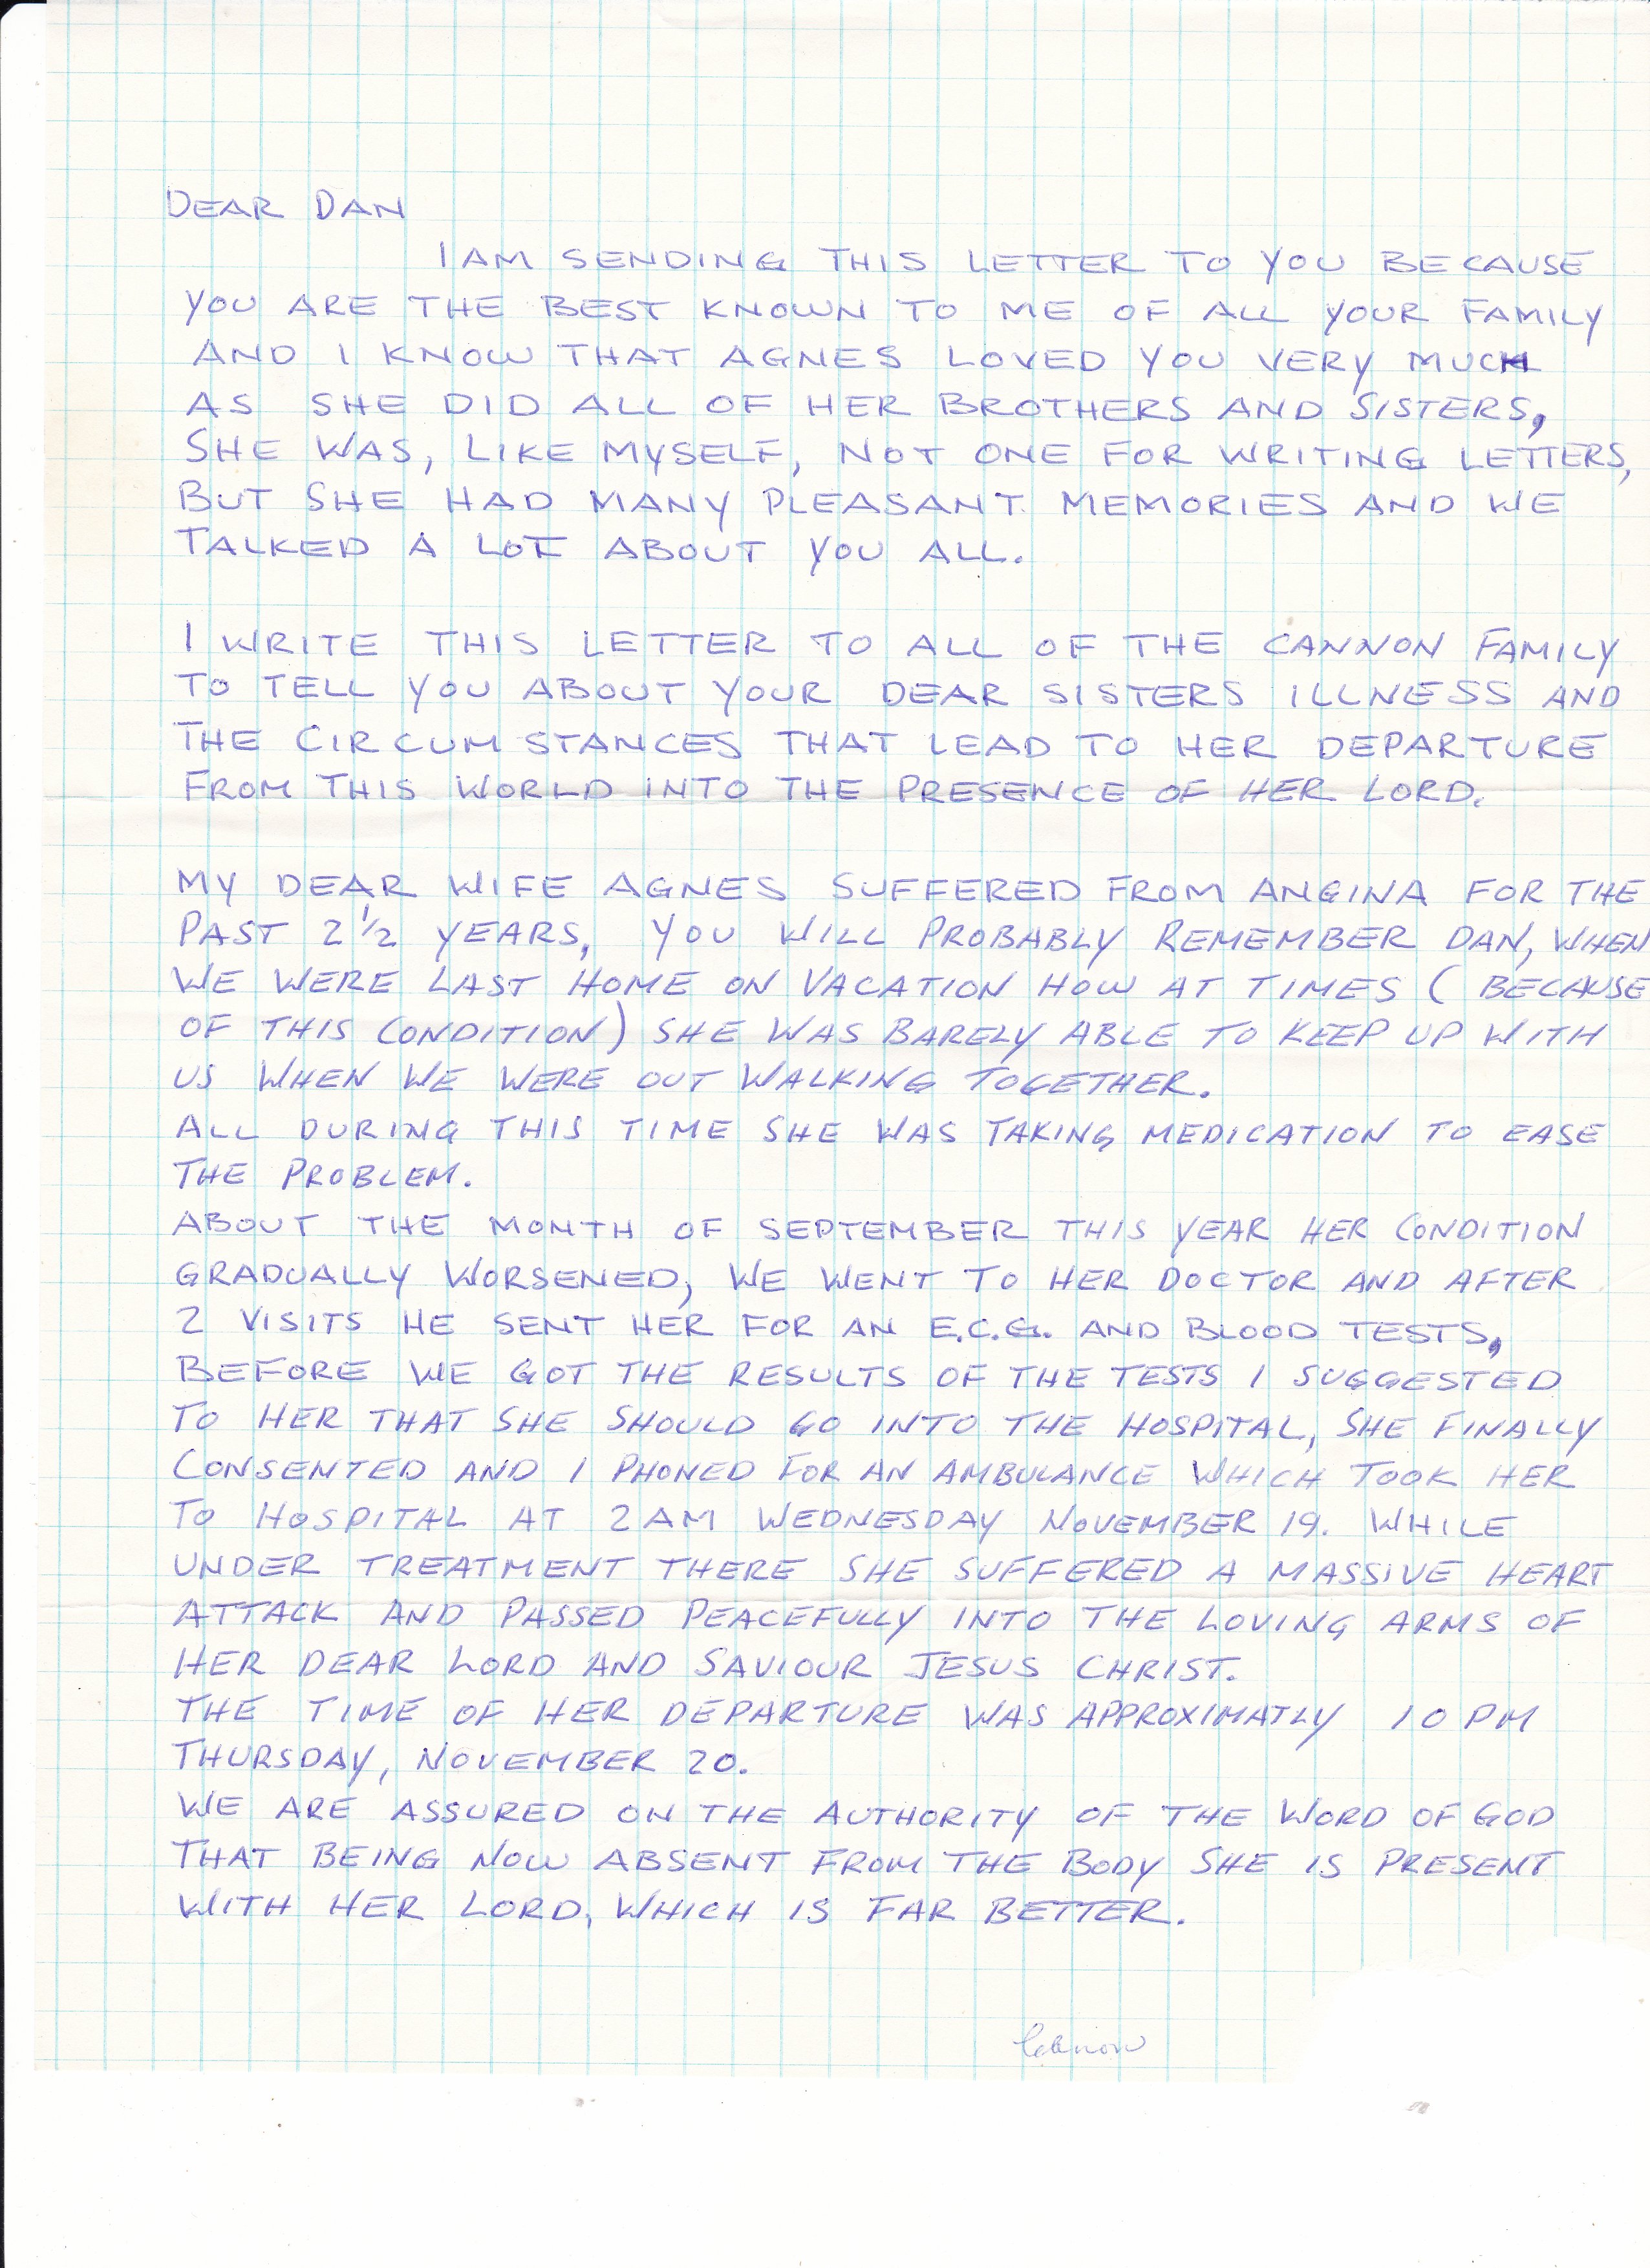 DEAR DAN
I AM SENDING THIS LETTER TO YOU BECAUSE
YOU ARE THE BEST KNOWN TO ME OF ALL YOUR FAMILY
AND I KNOW THAT AGNES LOVED YOU VERY MUCH
AS SHE DID ALL OF HER BROTHERS AND SISTERS,
SHE WAS, LIKE MYSELF, NOT ONE FOR WRITING LETTERS,
BUT SHE HAD MANY PLEASANT MEMORIES AND WE
TALKED A LOT ABOUT YOU ALL.
I WRITE THIS LETTER TO ALL OF THE CANNON FAMILY
TO TELL YOU ABOUT YOUR DEAR SISTERS ILLNESS AND
THE CIRCUMSTANCES THAT LEAD TO HER DEPARTURE
FROM THIS WORLD INTO THE PRESENCE OF HER LORD.
MY DEAR WIFE AGNES SUFFERED FROM ANGINA FOR THE
PAST 2 1/2 YEARS, YOU WILL PROBABLY REMEMBER DAN, WHEN
WE WERE LAST HOME ON VACATION HOW AT TIMES (BECAUSE
OF THIS CONDITION) SHE WAS BARELY ABLE TO KEEP UP WITH
US WHEN WE WERE OUT WALKING TOGETHER.
ALL DURING THIS TIME SHE WAS TAKING MEDICATION TO EASE
THE PROBLEM.
ABOUT THE MONTH OF SEPTEMBER THIS YEAR HER CONDITION
GRADUALLY WORSENED, WE WENT TO HER DOCTOR AND AFTER
2 VISITS HE SENT HER FOR AN E.C.G. AND BLOOD TESTS,
BEFORE WE GOT THE RESULTS OF THE TESTS I SUGGESTED
TO HER THAT SHE SHOULD GO INTO THE HOSPITAL, SHE FINALLY
CONSENTED AND I PHONED FOR AN AMBULANCE WHICH TOOK HER
TO HOSPITAL AT 2AM WEDNESDAY NOVEMBER 19. WHILE
UNDER TREATMENT THERE SHE SUFFERED A MASSIVE HEART
ATTACK AND PASSED PEACEFULLY INTO THE LOVING ARMS OF
HER DEAR LORD AND SAVIOUR JESUS CHRIST.
THE TIME OF HER DEPARTURE WAS APPROXIMATLY 10 PM
THURSDAY, NOVEMBER 20.
WE ARE ASSURED ON THE AUTHORITY OF THE WORD OF GOD
THAT BEING NOW ABSENT FROM THE BODY SHE IS PRESENT
WITH HER LORD, WHICH IS FAR BETTER.